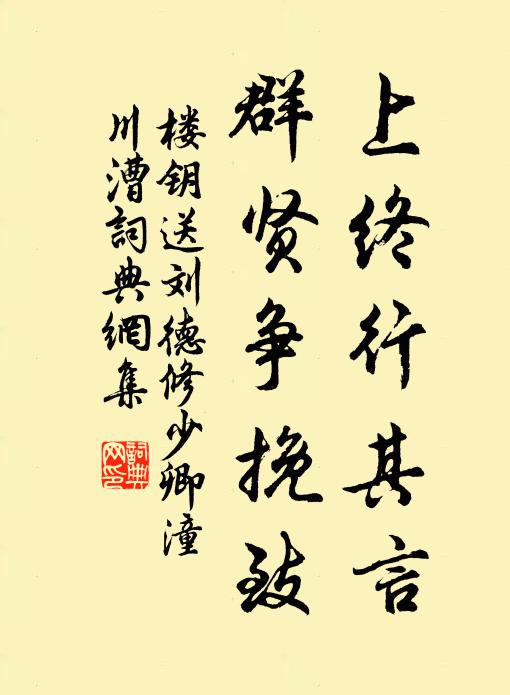 上终行其言
群贤争挽致
楼钥送刘德修少卿潼
川漕詞典網集
詞典
网印